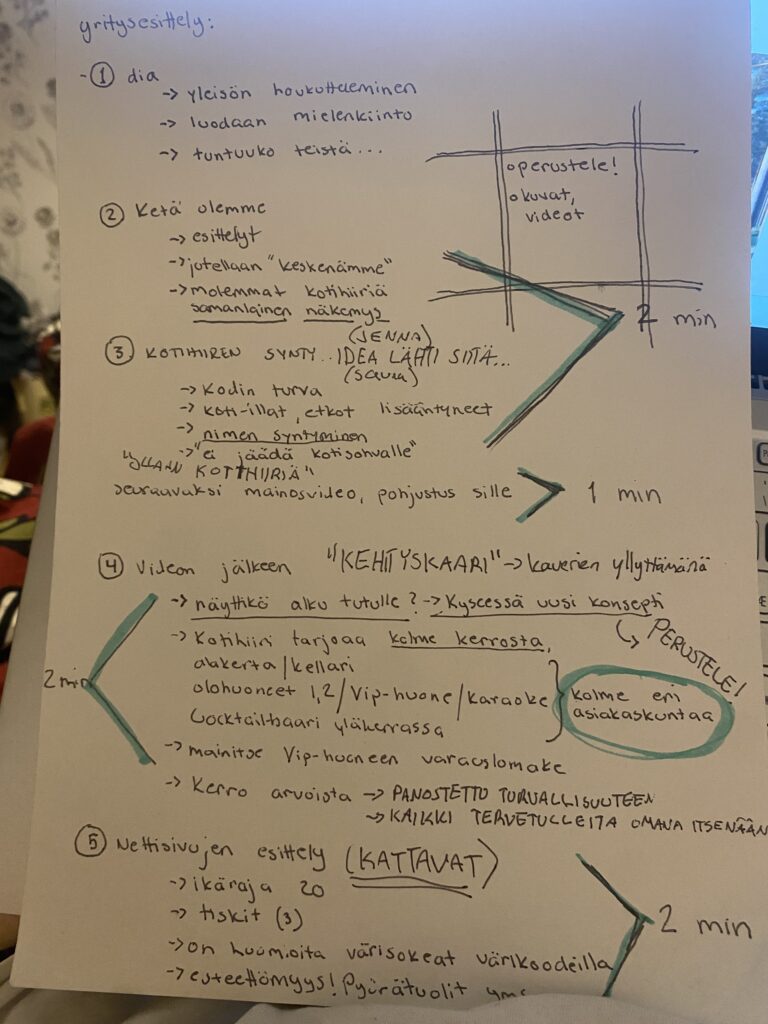 yritysesittely:
- ① dia
-> yleisön houkutteleminen
-> luodaan mielenkiinto
-> tuntuuko teistä...
o perustele!
o kuvat,
videot
② Ketä olemme
-> esittelyt
-> jutellaan "keskenämme"
-> molemmat kotihiiriä
samanlainen näkemys
2 min
(JENNA)
③ KOTIHIIREN SYNTY.. IDEA LÄHTI SIITÄ...
-> Kodin turva
-> koti-illat, etkot lisääntyneet
-> nimen syntyminen
-> "ei jäädä kotisohvalle"
KOTIHIIRIÄ"
seuraavaksi mainosvideo, pohjustus sille
1 min
④ Videon jälkeen "KEHITYSKAARI" -> kaverien yllyttämänä
-> näyttikö alku tutulle? -> Kyseessä uusi konsepti
PERUSTELE!
-> Kotihiiri tarjoaa kolme kerrosta,
alakerta/kellari
olohuoneet 1,2/Vip-huone/karaoke
Cocktailbaari yläkerrassa
kolme eri
asiakaskuntaa
2 min
-> mainitse Vip-huoneen varauslomake
-> Kerro arvoista -> PANOSTETTU TURVALLISUUTEEN
-> KAIKKI TERVETULLEITA OMANA ITSENÄÄN
⑤ Nettisivujen esittely (KATTAVAT)
-> ikäraja 20
-> tiskit (3)
-> on huomioitu värisokeat värikoodeilla
-> esteettömyys! Pyörätuolit yms
2 min